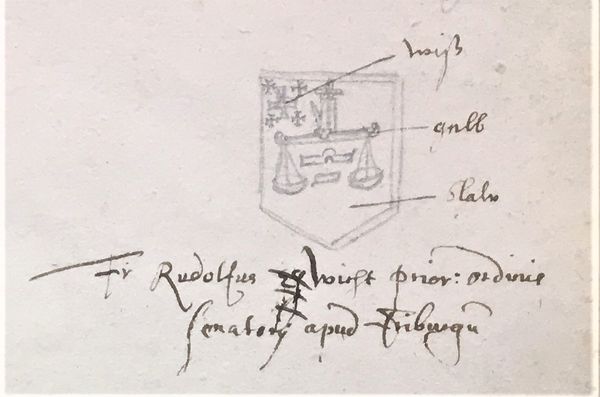 wiß
gelb
blaw
Fr Rudolfus wicht prior: ordinis
senatorij apud Friburgū